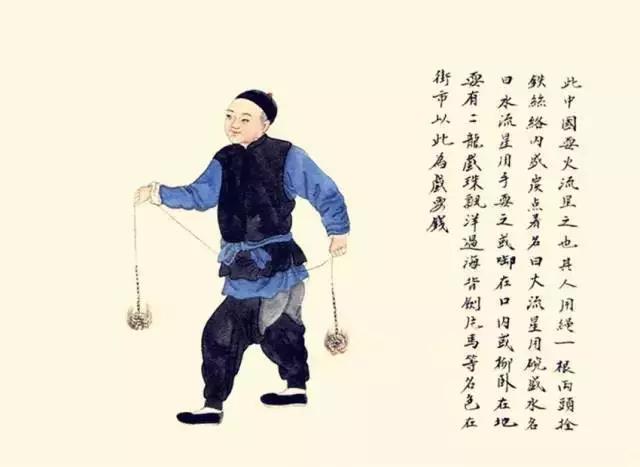 此中國耍火流星之也其人用繩一根兩頭拴
鉄絲絡內盛炭点着名曰大流星用碗盛水名
曰水流星用手耍之或啣在口內或柳臥在地
耍有二龍戲珠觀洋過海背劍片馬等名色在
街市以此為戲要錢